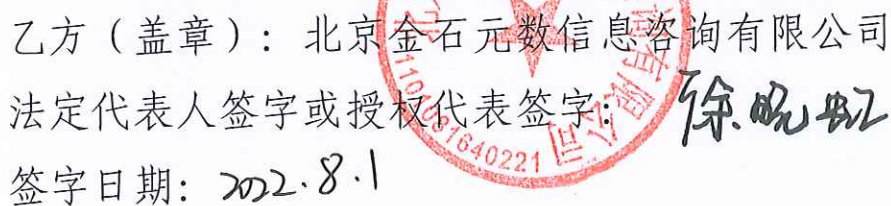 乙方（盖章）：北京金石元数信息咨询有限公司
法定代表人签字或授权代表签字：徐晓虹
签字日期：2022.8.1